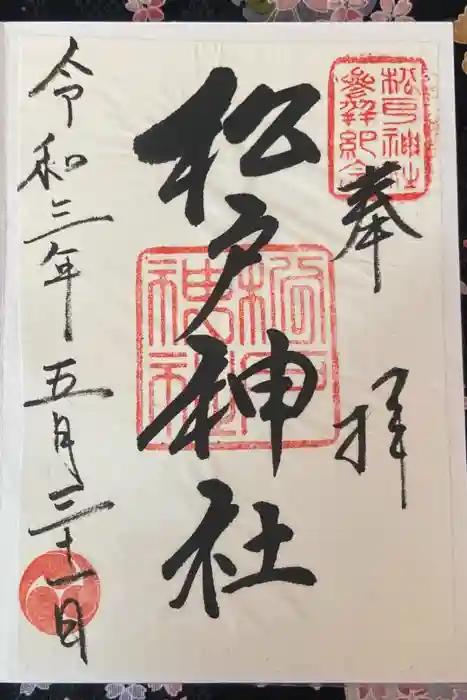 奉拝
松戸神社
参拝記念
松戸神社
松戸神社
令和三年五月三十一日